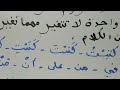 واحدة لا تتغير مهما تغير
الكلام
كَتَبْتُ - كَتَبْتَ - كَتَبْتِ
في - من - على - أنْ -